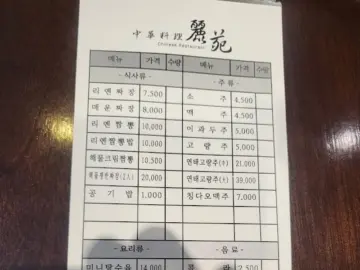 中華料理 麗苑
Chinese Restaurant
메뉴 가격 수량 메뉴 가격 수량
- 식사류 - - 주류 -
리엔짜장 7,500 소주 4,500
매운짜장 8,000 맥주 4,500
리엔짬뽕 10,000 이과두주 5,000
리엔짬뽕밥 10,000 고량주 5,000
해물크림짬뽕 10,500 연태고량주(小) 21,000
해물쟁반짜장(2人) 20,000 연태고량주(中) 39,000
공기밥 1,000 칭다오맥주 7,000
- 요리류 - - 음료 -
미니탕수육 14,000 콜라 2,500